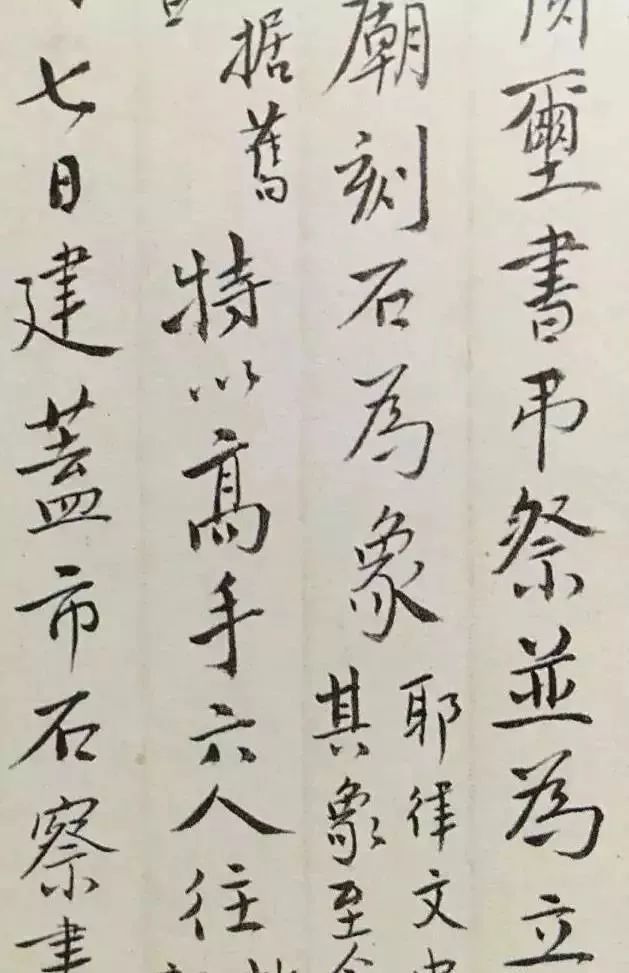 壐書弔祭並為立
廟刻石為象
耶律文
其象至
据舊
特以高手六人往
七日建蓋市石察書